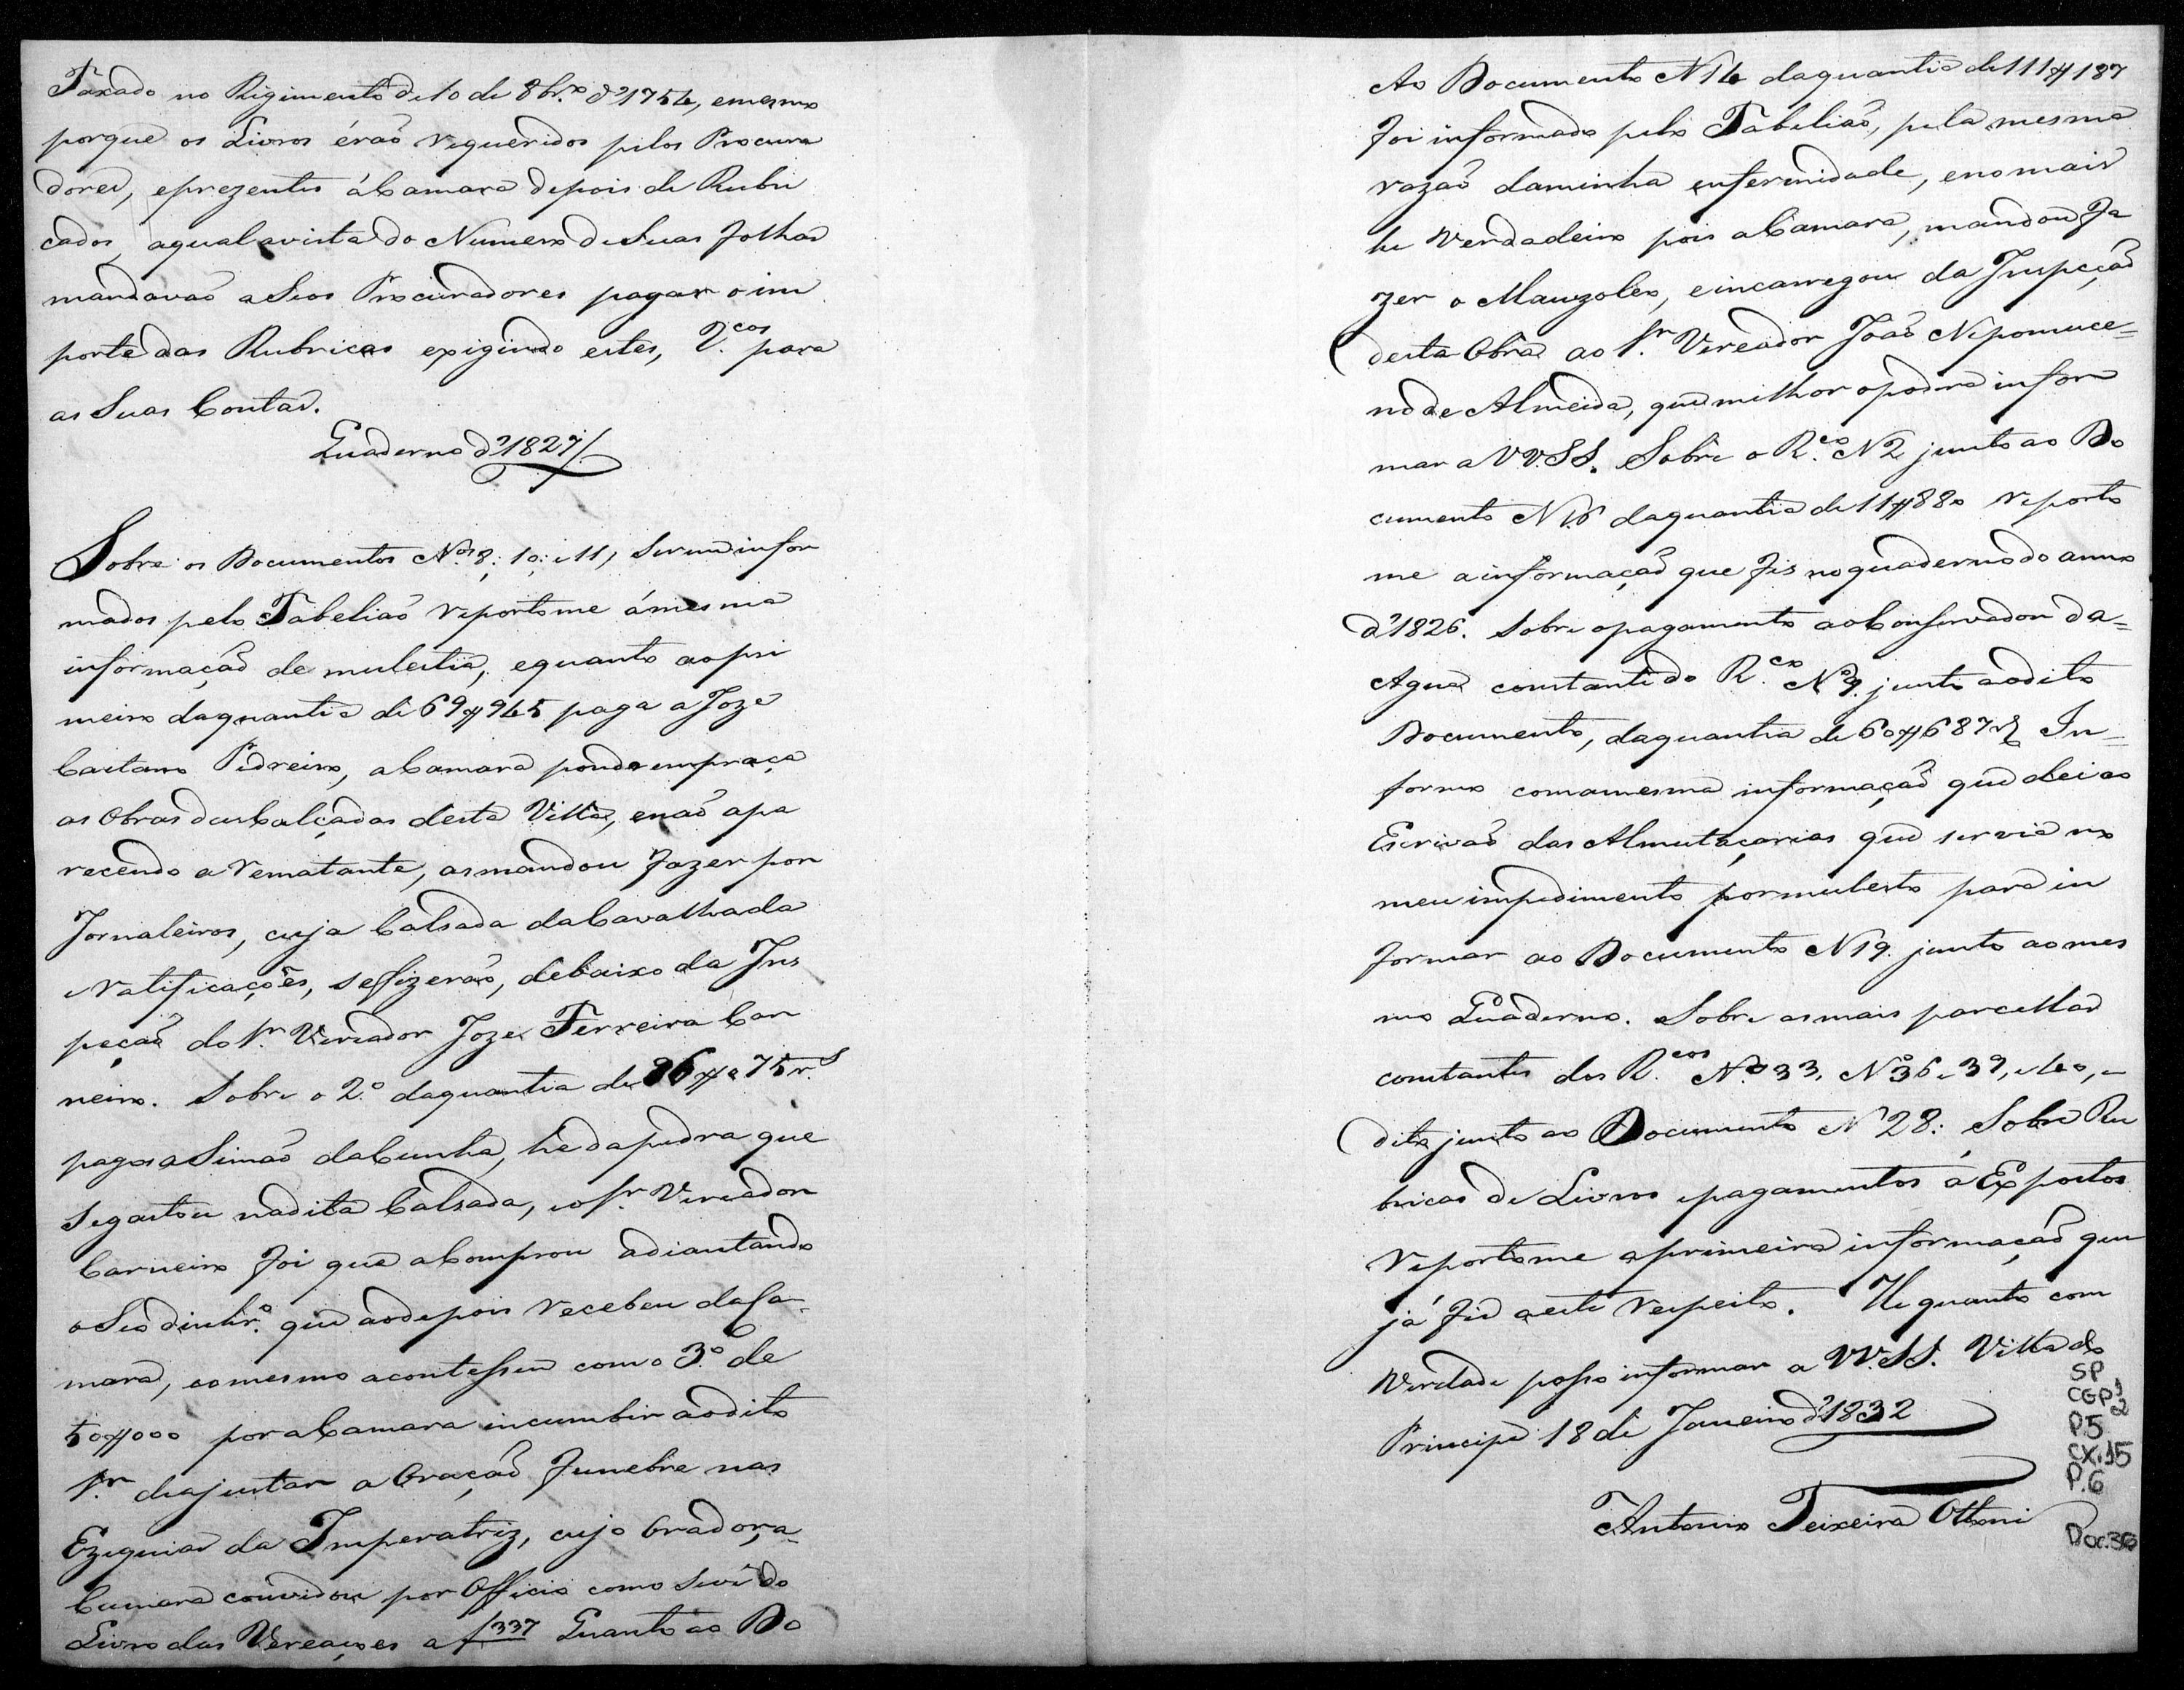 Taxado no Rigimento de 10 de 8br.º d'1754, emesmo
porque os Livros érão requeridos pelos Procura
dores, eprezentes áCamara depois de Rubri
cados, aqual avista do Numero deSuas folhas
mandavão aSeos Procuradores pagar oim
porte das Rubricas exigindo estes, R.cos para
as Suas Contas.
Quaderno d'1827/.
Sobre os Documentos N.os 8: 10: e 11, Serem infor
mados pelo Tabelião reportome ámesma
informação de mulestia, equanto aopri
meiro daquantia de 69$945 paga aJoze
Caetano Pedreiro, aCamara pondo empraça
as Obras dasCalçadas desta Villa, enaõ apa
recendo a rematante, asmandou fazer por
Jornaleiros, cuja Calsada daCavalhada
e ratificações, sefizerão, debaixo da Ins
peção do Sr. Vereador Joze Ferreira Car
neiro. Sobre o 2.º daquantia de 36$075 r.s
pagos aSimaõ daCunha, he dapedra que
segastou nadita Calsada, eoSr. Vereador
Carneiro foi que aComprou adiantando
oSeo dinhr.º que aodepois recebeu daCa-
mara, eomesmo aconteSseu como 3.º de
50$000 poraCamara incumbir aodito
Sr. deajustar aOração Funebre nas
Ezequias da Imperatriz, cujo Orador, a-
Camara convidou por Officio como Sevê do
Livro das Vereações a f 337 Quanto ao Do
Ao Documento N14 daquantia de 111$187
foi informado pelo Tabelião, pela mesma
razaõ daminha enfermidade, enomais
he Verdadeiro pois aCamara, mandou fa
zer o Mauzoleo, eincarregou da Inspeção
desta Obra ao Sr. Vereador João Nepomuce=
no de Almeida, que milhor opodera infor
mar a VV.SS. Sobre o R.co N2 junto ao Do
cumento N16 daquantia de 11$880 reporto
me ainformação que fis noquaderno do anno
d'1826. Sobre opagamento aoConservador da=
Agua constante do R.co N.º 9. junto aodito
Documento, daquantia de 60$687 rs In=
formo comamesma informação que dei ao
Escrivaõ das Almutaçarias que servia no
meu impedimento pormulesto para in
formar ao Documento N19. junto aomes
mo Quaderno. Sobre asmais parcellas
constantes dos R.cos N.º 33, N.º 36 e 39, e 40, e
dito junto ao Documento N 28: Sobre Ru
bricas de Livros epagamentos á Expostos
reportome aprimeira informação que
já fis aeste respeito. He quanto com
Verdade poSso informar a VV.SS. Villa do
Principe 18 de Janeiro d'1832
Antonio Teixeira Ottoni
SP
CGP 1
2
P.5
CX.15
P.6
Doc.30